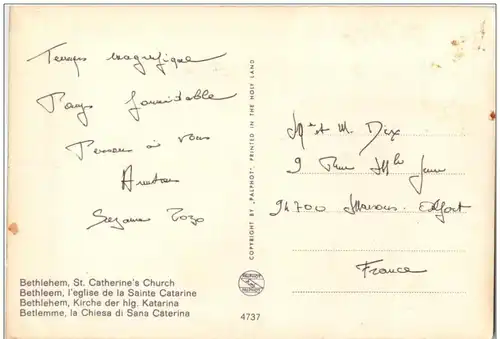 Temps magnifique
Pays formidable
Pensons à vous
Suzanne
Bethlehem, St. Catherine's Church
Bethleem, l'eglise de la Sainte Catarine
Bethlehem, Kirche der hlg. Katarina
Betlemme, la Chiesa di Sana Caterina
COPYRIGHT BY „PALPHOT", PRINTED IN THE HOLY LAND
4737
et M.
9 Rue
94700 Maisons-Alfort
France